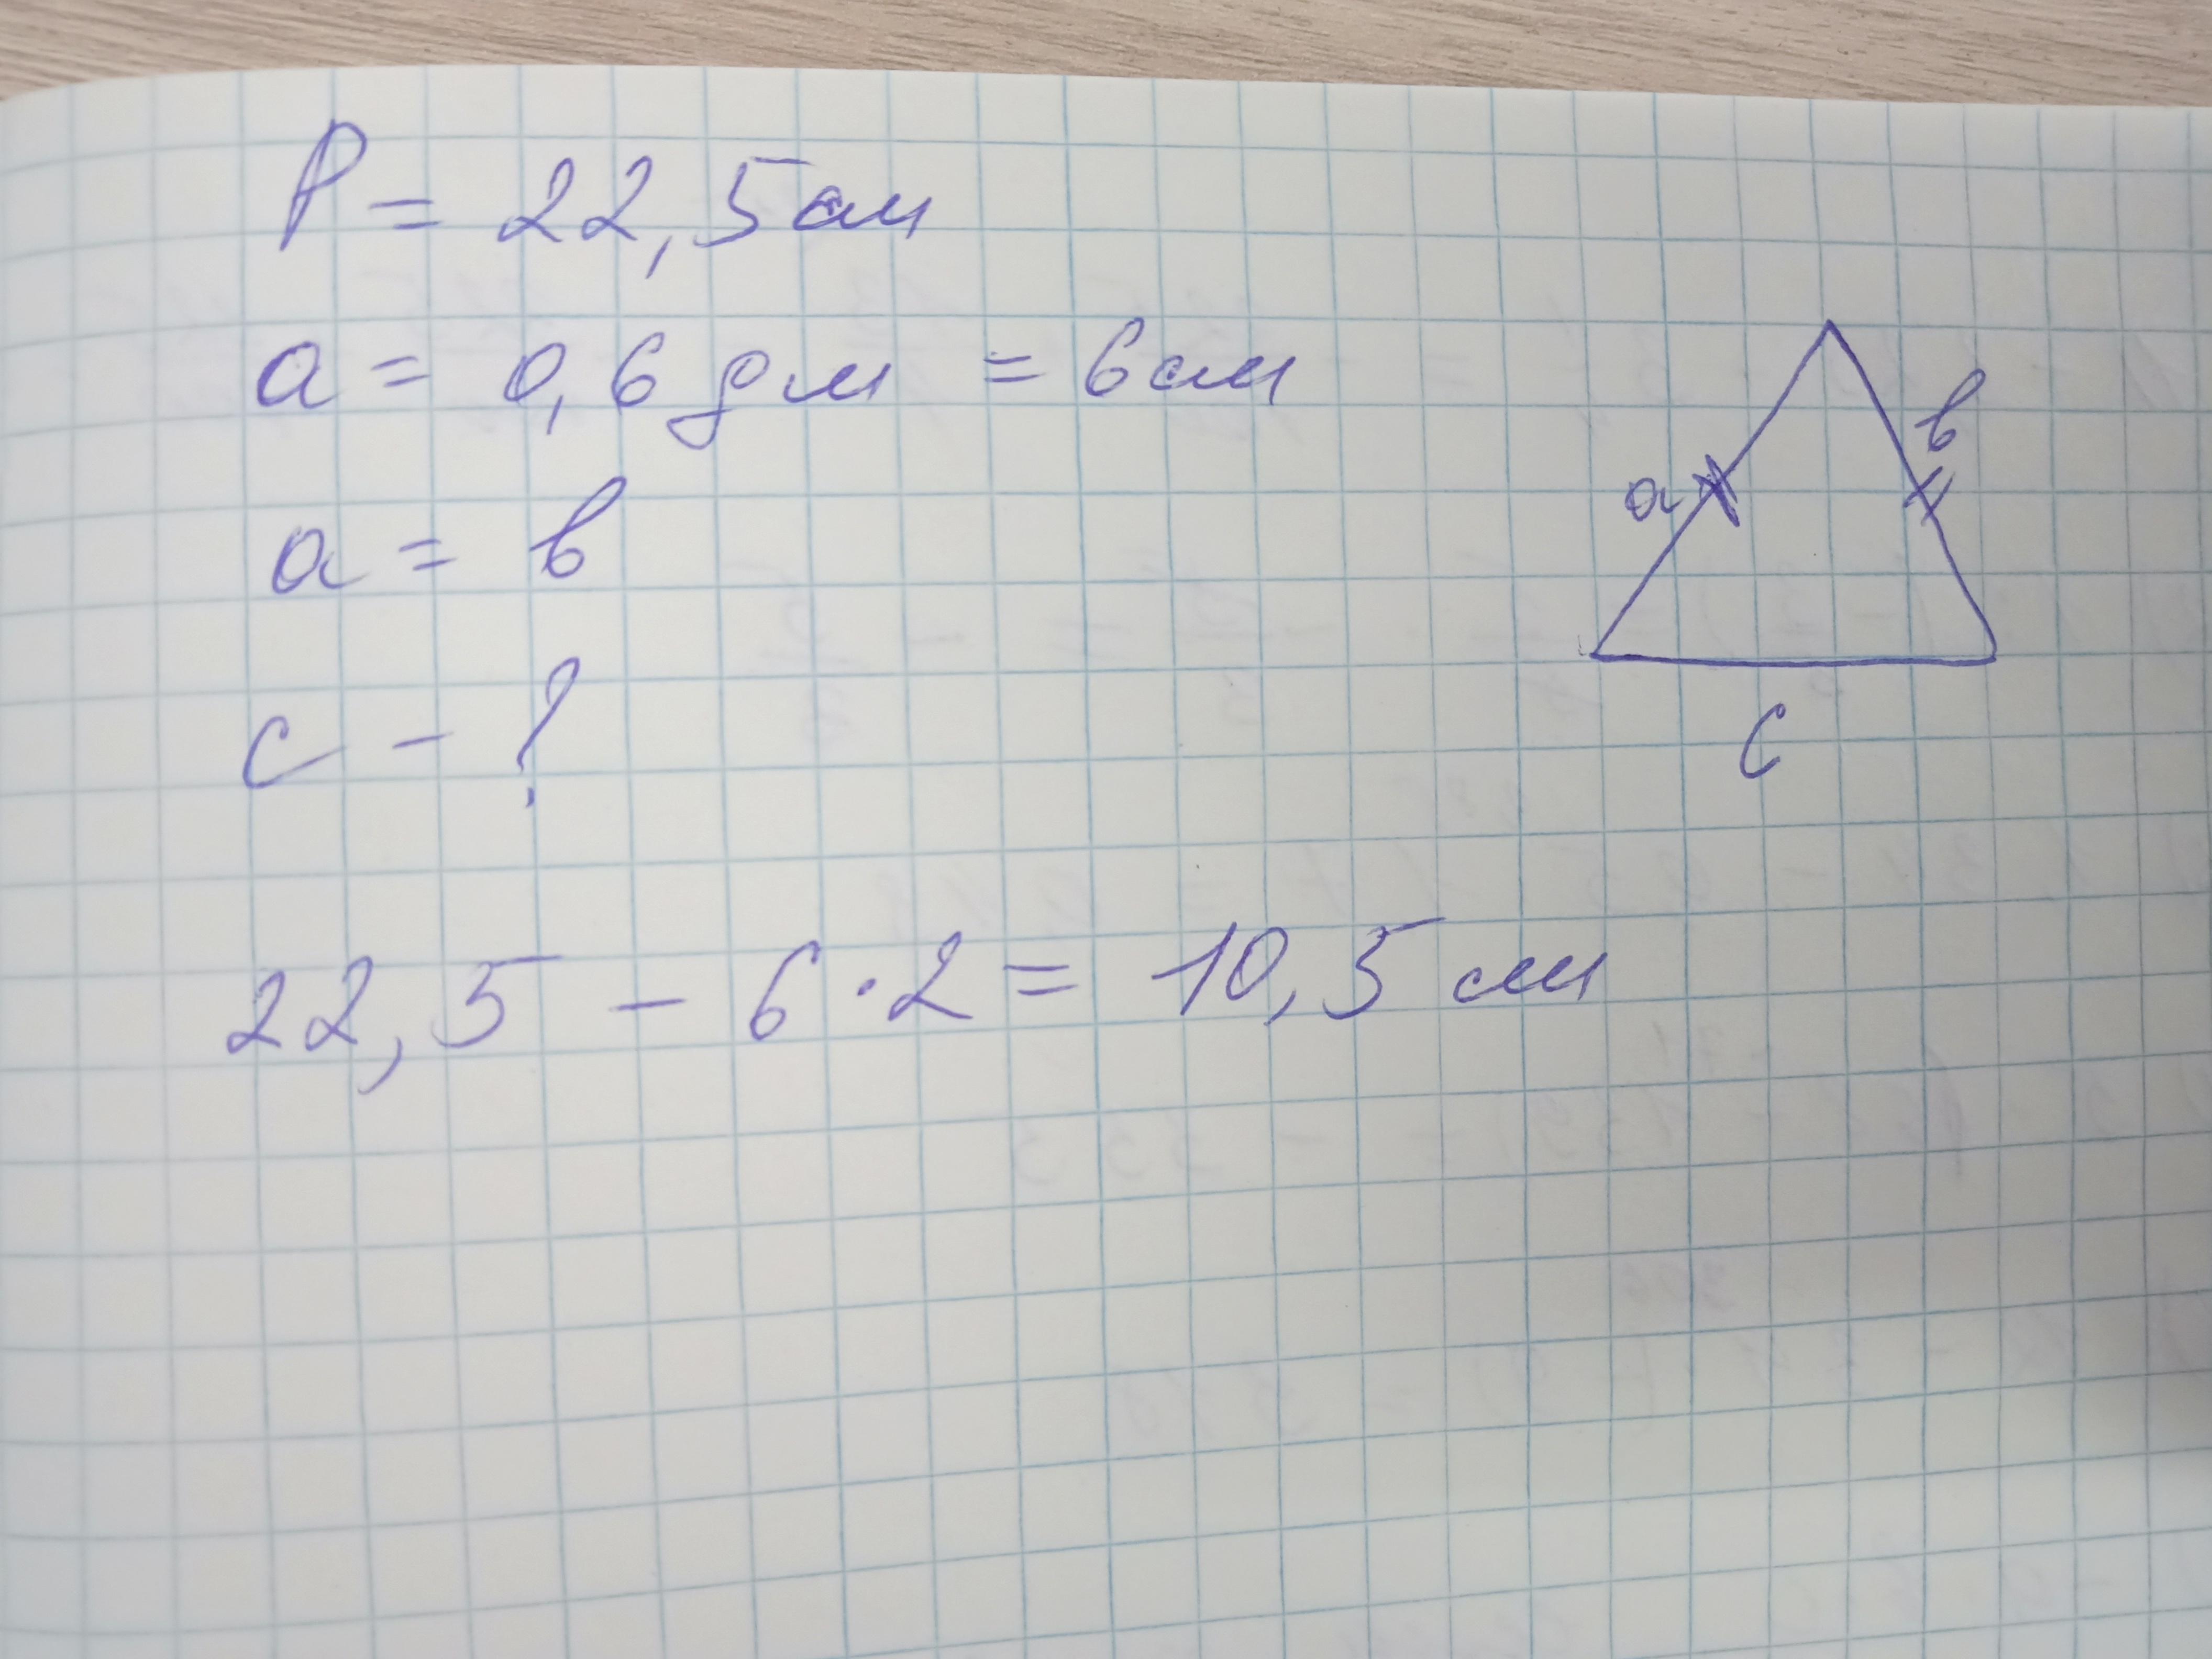 P = 22,5 см
a = 0,6 дм = 6 см
a = в
c - ?
a
в
c
22,5 - 6 · 2 = 10,5 см